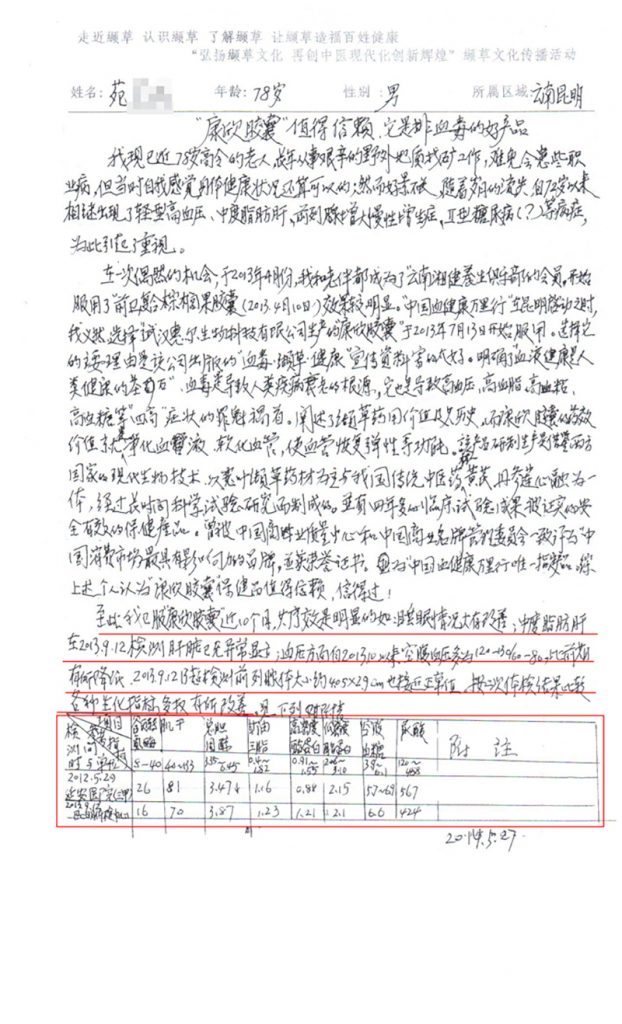 走近缬草 认识缬草 了解缬草 让缬草造福百姓健康
“弘扬缬草文化 再创中医现代化创新辉煌”缬草文化传播活动
姓名: 苑 年龄: 78岁 性别: 男 所属区域: 云南昆明
“康欣胶囊”值得信赖,它是排血毒的好产品
我现已近78岁高令的老人,成年从事艰辛的野外地质找矿工作,难免会患些职
业病,但当时自我感觉身体健康状况还算可以的;然而好景不长,随着岁月的流失,自72岁以来
相继出现了轻型高血压、中度脂肪肝,前列腺增大慢性增生症,II型糖尿病(?)等病症,
为此引起了重视。
在一次偶然的机会,于2013年4月份,我和老伴都成为了“云南湘健养生俱乐部的会员,开始
服用了前卫 棕榈果胶囊(2013.4月10日)效果较明显。“中国血健康万里行”在昆明启动之时,
我义然选择试 惠尔生物科技有限公司生产的康欣胶囊”于2013年7月13日开始服用。选择它
的主要理由是该公司出版的“血毒·缬草·健康”宣传资料 的 好。明确了血液健康是人
类健康的基石”,血毒是导致人类疾病衰老的根源,它也是导致高血压,高血脂,高血糖,
高血 等“四高”症状的罪魁祸首。阐述了缬草药用价值及历史,而康欣胶囊的药效
价值 净化血液,软化血管,使血管恢复弹性等功能。该产品研制生产是借鉴西方
国家的现代生物技术,以 叶缬草药材为主与我国传统中医药黄芪、丹参 融为一
体,经过长时间科学试验研究而制成的。并有四年多的临床试验成果被证实的安
全有效的保健产品。曾被中国商业质量中心和中国商业名牌管理委员会一致评为“中
国消费市场最具有影响力的品牌,并获荣誉证书。 为“中国血健康万里行唯一指定产品。综
上述个人认为“康欣胶囊”保健品值得信赖,信得过!
至此我已服康欣胶囊近10个月,其疗效是明显的如:睡眠情况大有改善;中度脂肪肝
在2013.9.12检测肝脏已无异常显示;血压方面自2013.10以来空腹血压多为120-130/60-80,比前期
有所降低。2013.9.12日超检测前列腺体大小约4.05×2.9cm也接近正常值。按二次体检结果比较
各种生化指标多数有所改善。见下列对比表
检测时间与单位 项目 参考指标 谷丙转氨酶 肌干 总胆固醇 甘油三脂 高密度脂蛋白 低密度脂蛋白 空腹血糖 尿酸 附注
5-40 40-133 0.91-1.55 2.06-3.10
2012.5.29
延安医院(三甲) 26 81 3.474 1.16 0.88 2.15 5.7-6.9 567
16 70 3.87 1.23 1.21 2.1 6.6 424
2014.5.27